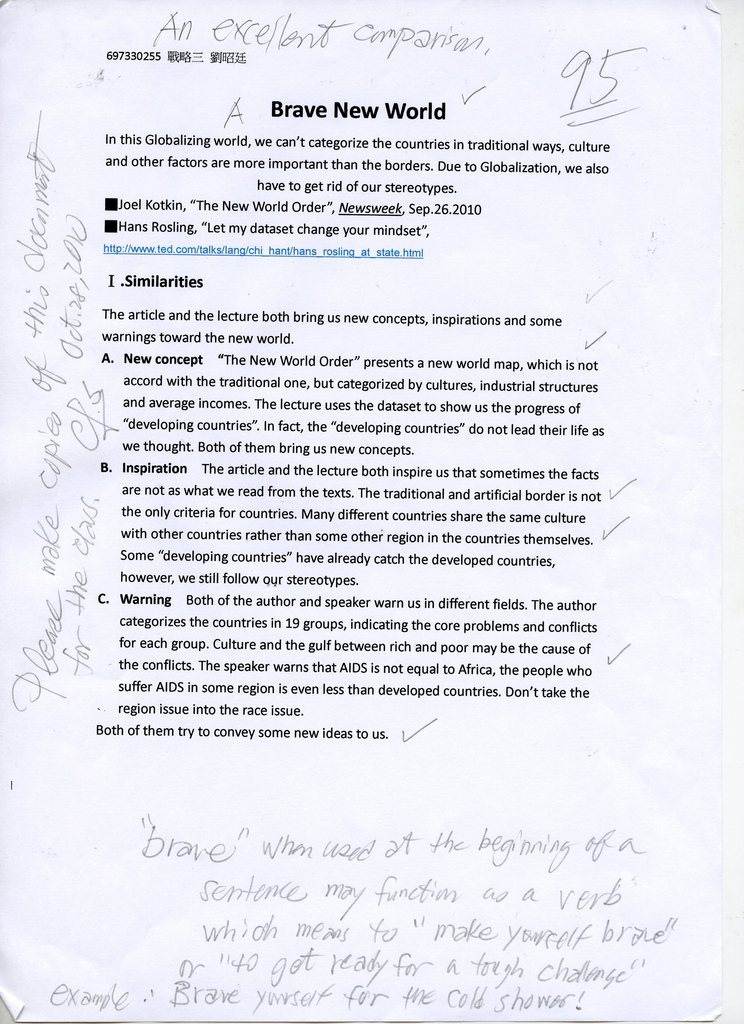 An excellent comparison.
697330255 戰略三 劉昭廷
95
A Brave New World
In this Globalizing world, we can't categorize the countries in traditional ways, culture
and other factors are more important than the borders. Due to Globalization, we also
have to get rid of our stereotypes.
■Joel Kotkin, "The New World Order", Newsweek, Sep.26.2010
■Hans Rosling, "Let my dataset change your mindset",
http://www.ted.com/talks/lang/chi_hant/hans_rosling_at_state.html
Ⅰ.Similarities
The article and the lecture both bring us new concepts, inspirations and some
warnings toward the new world.
A. New concept "The New World Order" presents a new world map, which is not
accord with the traditional one, but categorized by cultures, industrial structures
and average incomes. The lecture uses the dataset to show us the progress of
"developing countries". In fact, the "developing countries" do not lead their life as
we thought. Both of them bring us new concepts.
B. Inspiration The article and the lecture both inspire us that sometimes the facts
are not as what we read from the texts. The traditional and artificial border is not
the only criteria for countries. Many different countries share the same culture
with other countries rather than some other region in the countries themselves.
Some "developing countries" have already catch the developed countries,
however, we still follow our stereotypes.
C. Warning Both of the author and speaker warn us in different fields. The author
categorizes the countries in 19 groups, indicating the core problems and conflicts
for each group. Culture and the gulf between rich and poor may be the cause of
the conflicts. The speaker warns that AIDS is not equal to Africa, the people who
suffer AIDS in some region is even less than developed countries. Don't take the
region issue into the race issue.
Both of them try to convey some new ideas to us.
Please make copies of this document
for the class. Oct. 28, 2010
"brave" when used at the beginning of a
sentence may function as a verb
which means to "make yourself brave"
or "to get ready for a tough challenge"
example: Brave yourself for the cold shower!